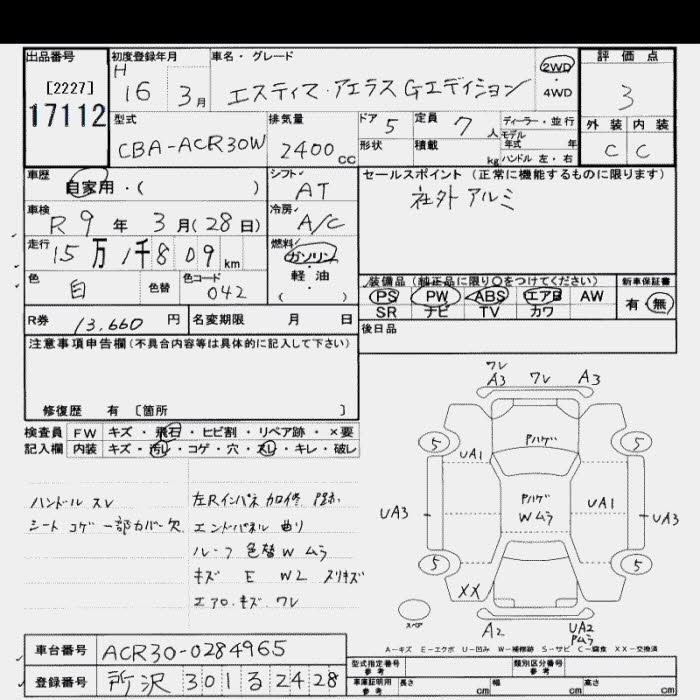 出品番号 [2227] 17112
初度登録年月 H 16 3月
車名・グレード エスティマ・アエラス Gエディション
2WD・4WD
評価点 3
外装 内装
C C
型式 CBA-ACR30W
排気量 2400 CC
ドア 5
定員 7 人
ディーラー・並行
モデル年式 年
形状
積載 kg
ハンドル 左・右
車歴 自家用・( )
シフト AT
セールスポイント (正常に機能するものに限ります)
社外アルミ
車検 R9年 3月(28日)
冷房 A/C
走行 15万1千809km
燃料 ガソリン・軽油 ( )
色 白 色替 色コード 042
装備品 (純正品に限り○をつけてください)
PS PW ABS エアB AW
SR ナビ TV カワ
新車保証書 有・無
R券 13,660円
名変期限 月 日
後日品
注意事項申告欄 (不具合内容等は具体的に記入して下さい)
修復歴 有 [箇所 ]
検査員記入欄
FW キズ・飛石・ヒビ割・リペア跡・×要
内装 キズ・汚レ・コゲ・穴・スレ・キレ・破レ
ハンドル スレ
シート コゲ 一部カバー欠
左Rインパネ 加修
エンドパネル 曲り
ルーフ 色替W ムラ
キズ E W2 スリキズ
エアロ・キズ ワレ
ワレ
A3 ワレ A3
5 5
Pハゲ
UA1
Pハゲ
Wムラ
UA1
UA3 UA3
5 5
XX
スペア
A2 UA2
Pムラ
A-キズ E-エクボ U-凹み W-補修跡 S-サビ C-腐食 XX-交換済
車台番号 ACR30-0284965
登録番号 所沢 301 る 2428
型式指定番号 参考
類別区分番号 参考
車庫証明用 参考 長さ cm 幅 cm 高さ cm